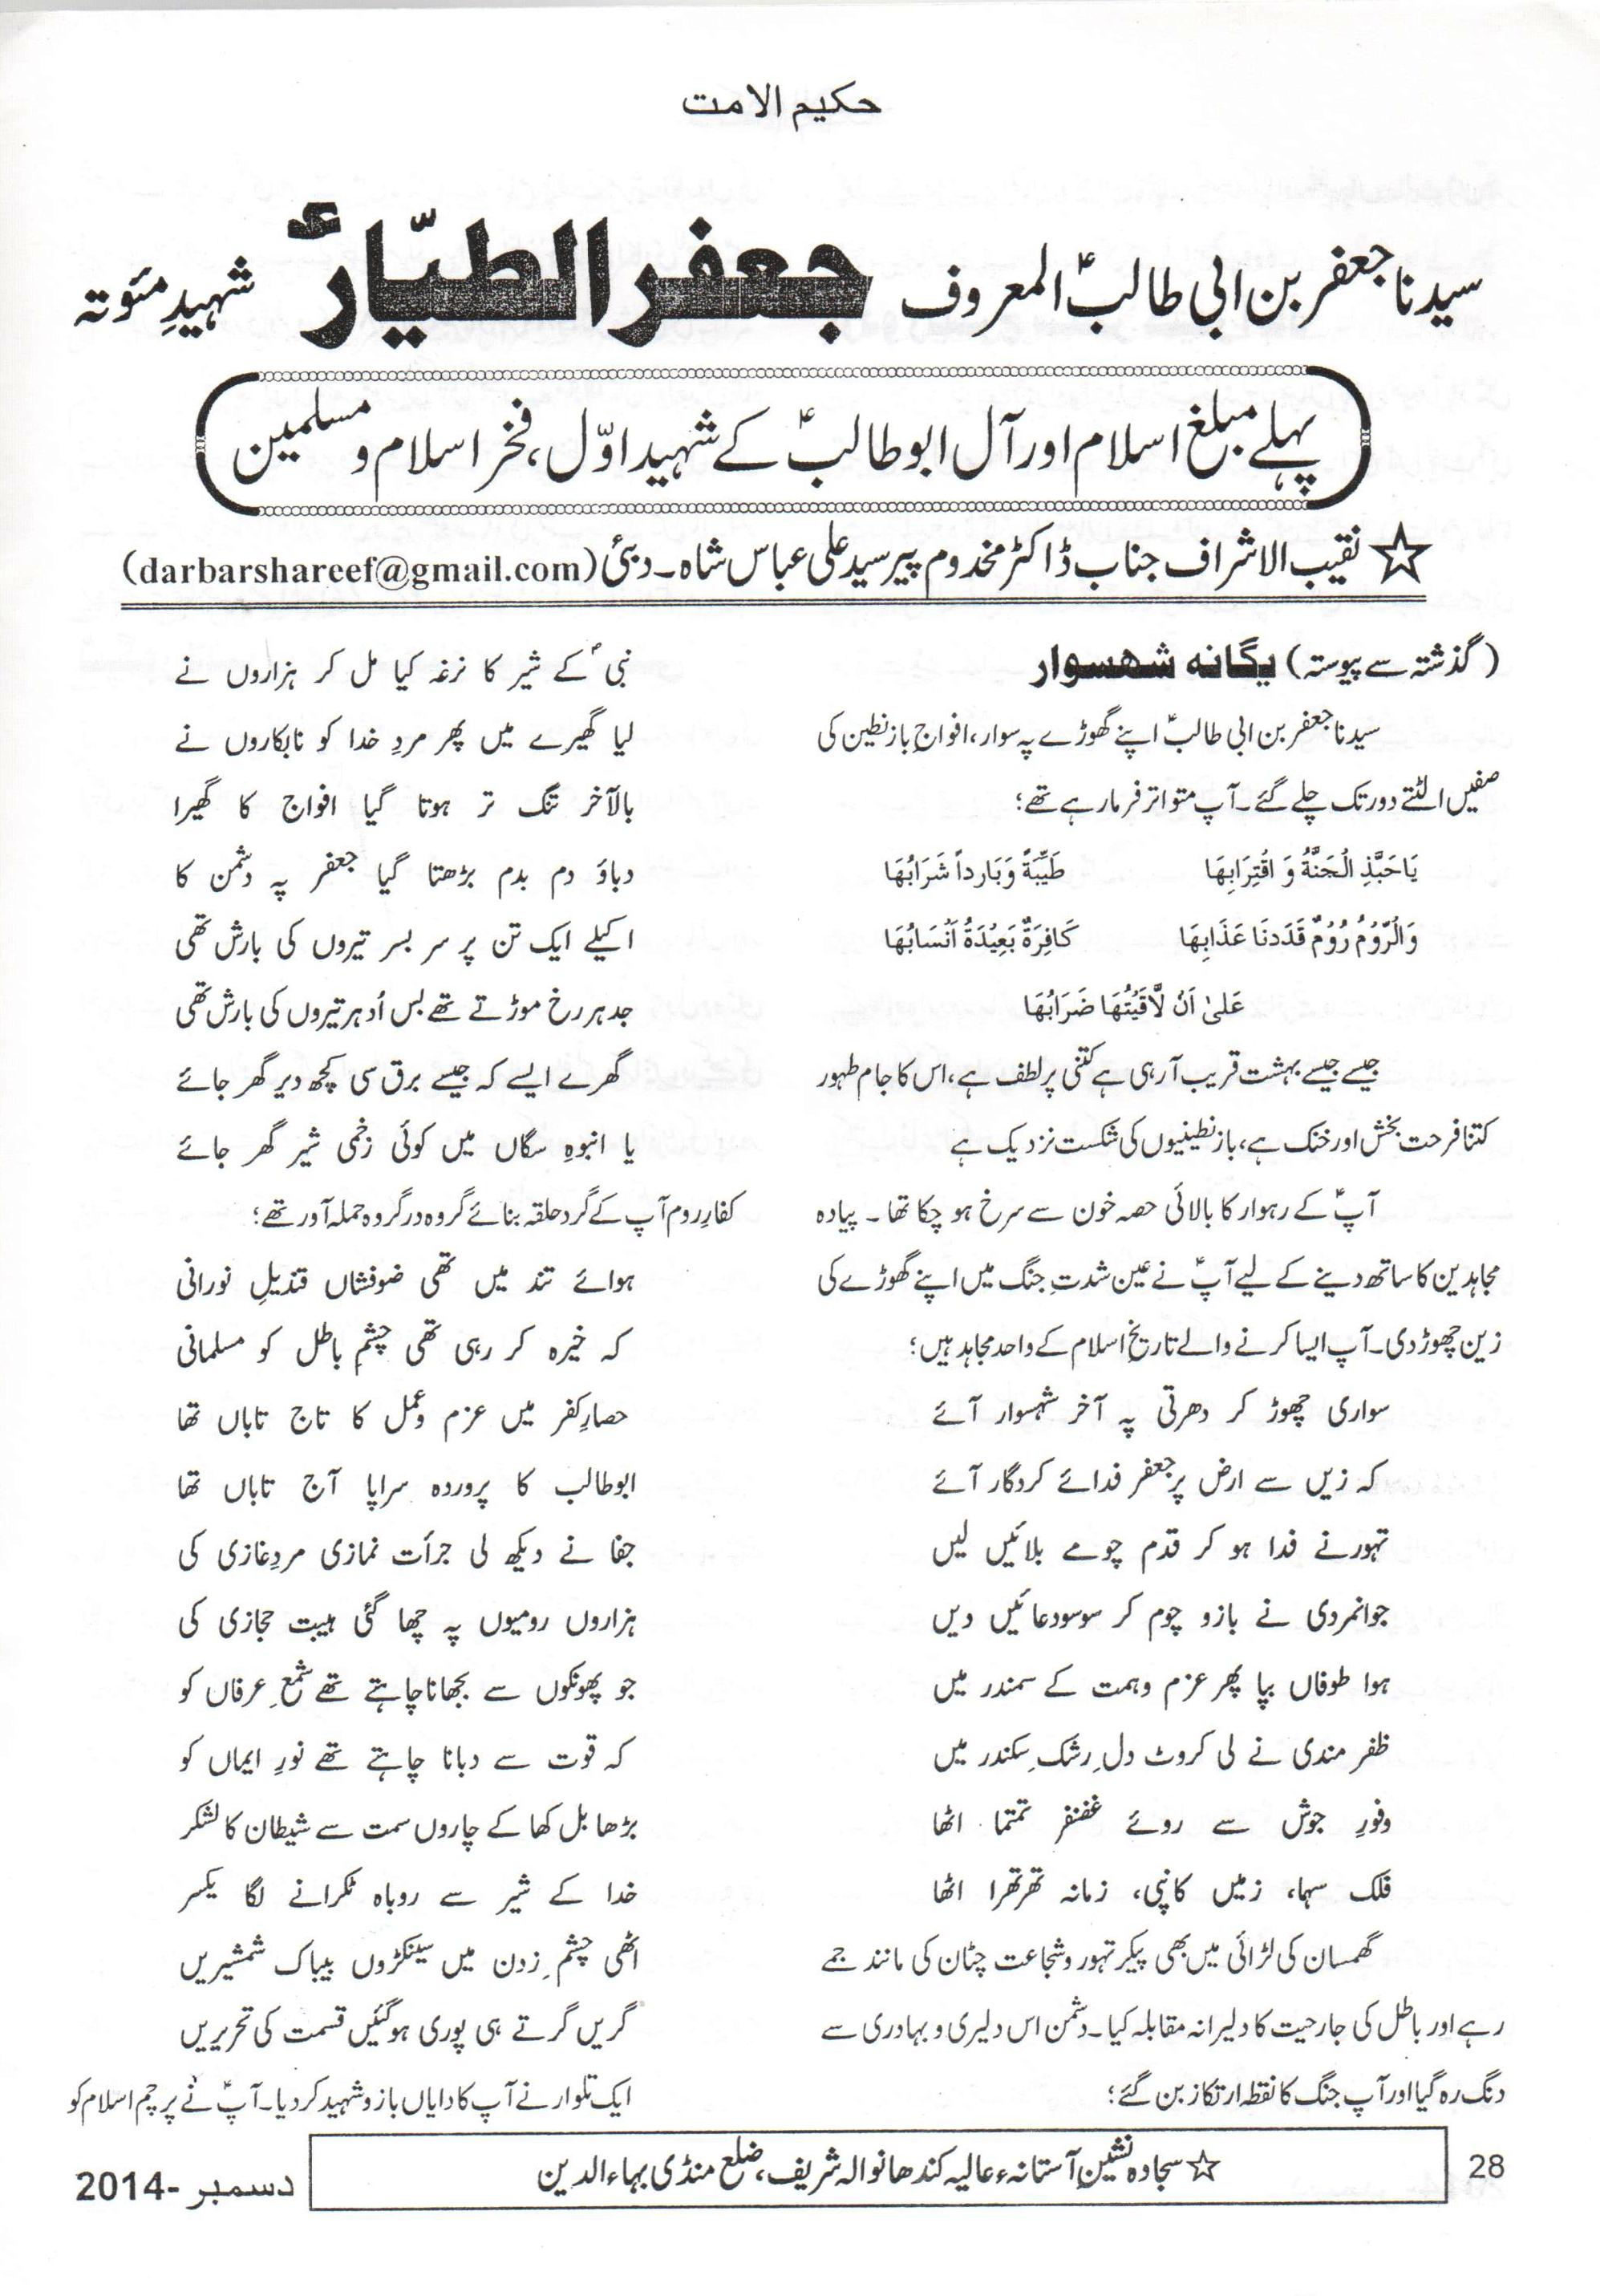 حکیم الامت
سیدنا جعفر بن ابی طالبؑ المعروف جعفر الطیّارؑ شہیدِ مئوتہ
پہلے مبلغ اسلام اور آل ابوطالبؑ کے شہید اوّل، فخر اسلام و مسلمین
☆ نقیب الاشراف جناب ڈاکٹر مخدوم پیر سید علی عباس شاہ۔ دبئی (darbarshareef@gmail.com)
(گذشتہ سے پیوستہ) یگانہ شہسوار
سیدنا جعفر بن ابی طالبؑ اپنے گھوڑے پہ سوار، افواجِ بازنطین کی
صفیں الٹتے دور تک چلے گئے۔ آپ متواتر فرما رہے تھے؛
يَاحَبَّذِ الْجَنَّةُ وَ اقْتِرَابِهَا طَيِّبَةً وَبَارِداً شَرَابُهَا
وَالرُّوْمُ رُوْمٌ قَدَدنَا عَذَابِهَا كَافِرَةٌ بَعِيْدَةُ اَنْسَابُهَا
عَلىٰ اَنْ لَّاقَيْتُهَا ضَرَابُهَا
جیسے جیسے بہشت قریب آرہی ہے کتنی پر لطف ہے، اس کا جام طہور
کتنا فرحت بخش اور خنک ہے، بازنطینیوں کی شکست نزدیک ہے
آپؑ کے رہوار کا بالائی حصہ خون سے سرخ ہو چکا تھا ۔ پیادہ
مجاہدین کا ساتھ دینے کے لیے آپؑ نے عین شدتِ جنگ میں اپنے گھوڑے کی
زین چھوڑ دی۔ آپ ایسا کرنے والے تاریخِ اسلام کے واحد مجاہد ہیں؛
سواری چھوڑ کر دھرتی پہ آخر شہسوار آئے
کہ زیں سے ارض پر جعفر فدائے کردگار آئے
تہور نے فدا ہو کر قدم چومے بلائیں لیں
جوانمردی نے بازو چوم کر سوسو دعائیں دیں
ہوا طوفاں بپا پھر عزم وہمت کے سمندر میں
ظفر مندی نے لی کروٹ دلِ رشکِ سکندر میں
وفورِ جوش سے روئے غضنفر تمتما اٹھا
فلک سہما، زمیں کانپی، زمانہ تھرتھرا اٹھا
گھمسان کی لڑائی میں بھی پیکر تہور وشجاعت چٹان کی مانند جمے
رہے اور باطل کی جارحیت کا دلیرانہ مقابلہ کیا۔ دشمن اس دلیری و بہادری سے
دنگ رہ گیا اور آپ جنگ کا نقطہ ارتکاز بن گئے؛
نبیؐ کے شیر کا نرغہ کیا مل کر ہزاروں نے
لیا گھیرے میں پھر مردِ خدا کو نابکاروں نے
بالآخر تنگ تر ہوتا گیا افواج کا گھیرا
دباؤ دم بدم بڑھتا گیا جعفر پہ دشمن کا
اکیلے ایک تن پر سر بسر تیروں کی بارش تھی
جدہر رخ موڑتے تھے بس اُدہر تیروں کی بارش تھی
گھرے ایسے کہ جیسے برق سی کچھ دیر گھر جائے
یا انبوہِ سگاں میں کوئی زخمی شیر گھر جائے
کفارِ روم آپ کے گرد حلقہ بنائے گروہ در گروہ حملہ آور تھے؛
ہوائے تند میں تھی ضوفشاں قندیلِ نورانی
کہ خیرہ کر رہی تھی چشمِ باطل کو مسلمانی
حصارِ کفر میں عزم وعمل کا تاج تاباں تھا
ابوطالب کا پروردہ سراپا آج تاباں تھا
جفا نے دیکھ لی جرأت نمازی مردِ غازی کی
ہزاروں رومیوں پہ چھا گئی ہیبت حجازی کی
جو پھونکوں سے بجھانا چاہتے تھے شمعِ عرفاں کو
کہ قوت سے دبانا چاہتے تھے نورِ ایماں کو
بڑھا بل کھا کے چاروں سمت سے شیطان کا لشکر
خدا کے شیر سے روباہ ٹکرانے لگا یکسر
اٹھی چشمِ زدن میں سینکڑوں بیباک شمشیریں
گریں گرتے ہی پوری ہوگئیں قسمت کی تحریریں
ایک تلوار نے آپ کا دایاں بازو شہید کردیا۔ آپؑ نے پرچم اسلام کو
28
☆ سجادہ نشینِ آستانہء عالیہ کندھانوالہ شریف، ضلع منڈی بہاءالدین
دسمبر -2014